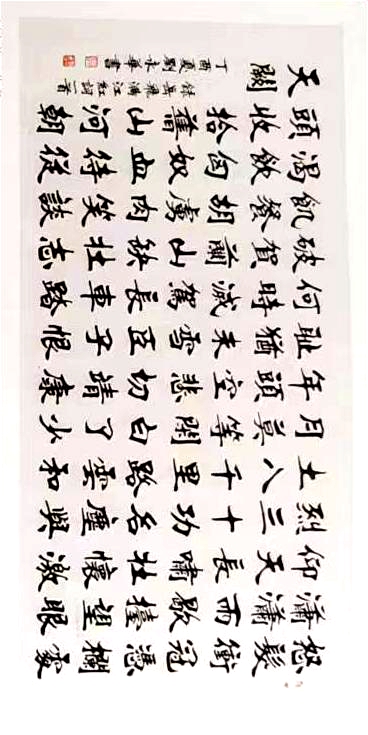 怒髮衝冠憑欄處
瀟瀟雨歇擡望眼
仰天長嘯壯懷激
烈三十功名塵與
土八千里路雲和
月莫等閑白了少
年頭空悲切靖康
耻猶未雪臣子恨
何時滅駕長車踏
破賀蘭山缺壯志
飢餐胡虜肉笑談
渴飲匈奴血待從
頭收拾舊山河朝
天闕
録岳飛滿江紅詞一首
丁酉夏劉永華書